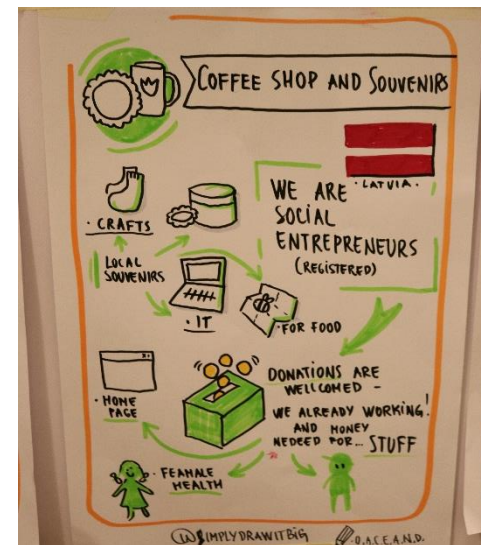 COFFEE SHOP AND SOUVENIRS
· LATVIA ·
WE ARE
SOCIAL
ENTREPRENEURS
(REGISTERED)
· CRAFTS
LOCAL
SOUVENIRS
· IT
· FOR FOOD
· HOME
PAGE
DONATIONS ARE
WELLCOMED –
WE ALREADY WORKING!
AND MONEY
NEDEED FOR... STUFF
· FEAMALE
HEALTH
@SIMPLYDRAWITBIG